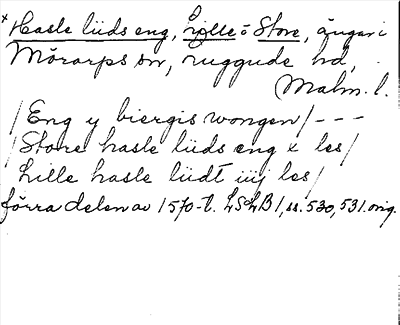 * Hasle liids eng, Lille o Store, ängar i
Mörarps sn, ruggude hd,
Malm. l.
/Eng y biergis wongen/ - - -
/Store hasle liids eng x les/
Lille hasle liidt iiij les/
förra delen av 1570-t. LSLB 1, ss. 530, 531. orig.